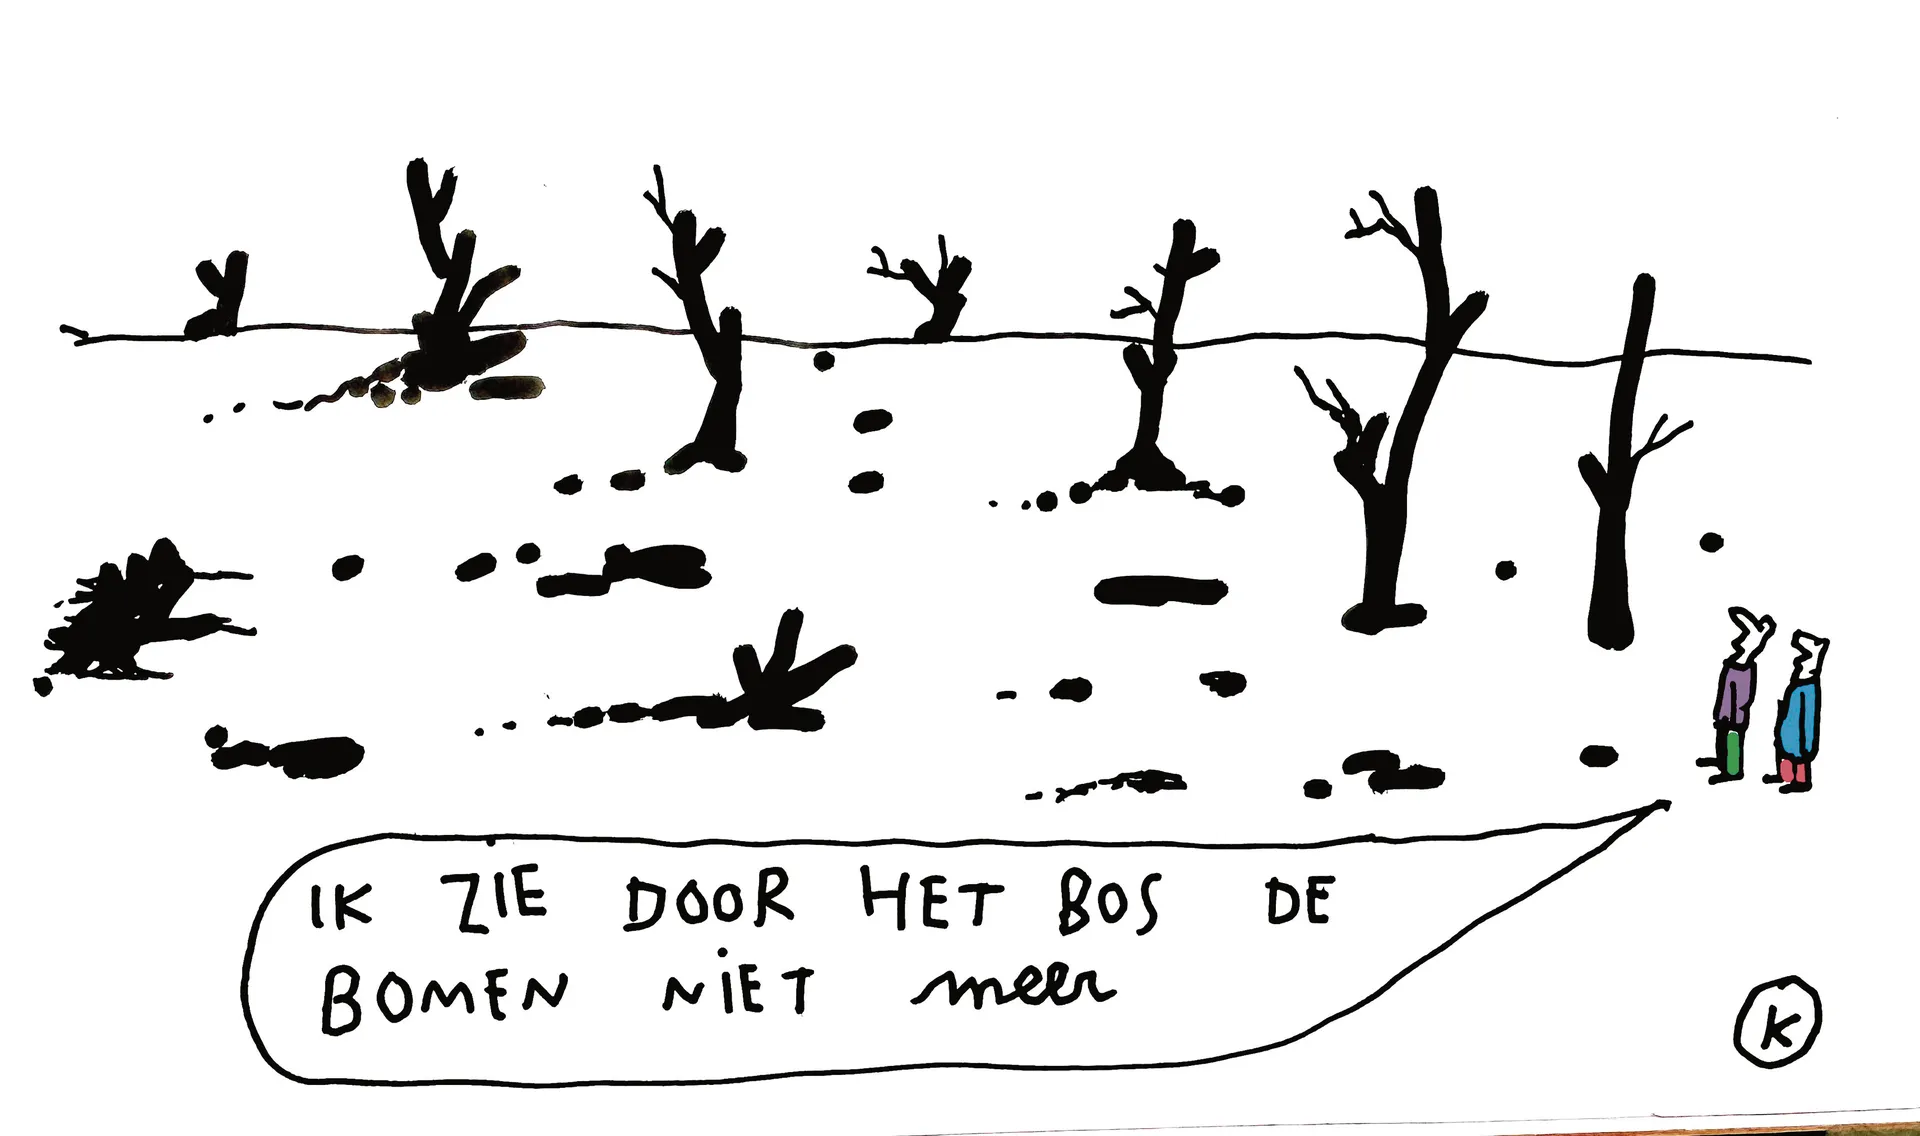 IK ZIE DOOR HET BOS DE
BOMEN NIET meer
K